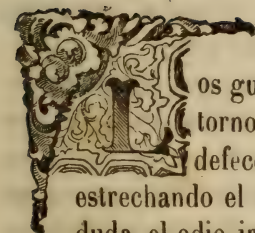 Los gu
torno
defec
estrechando el
duda, el odio in